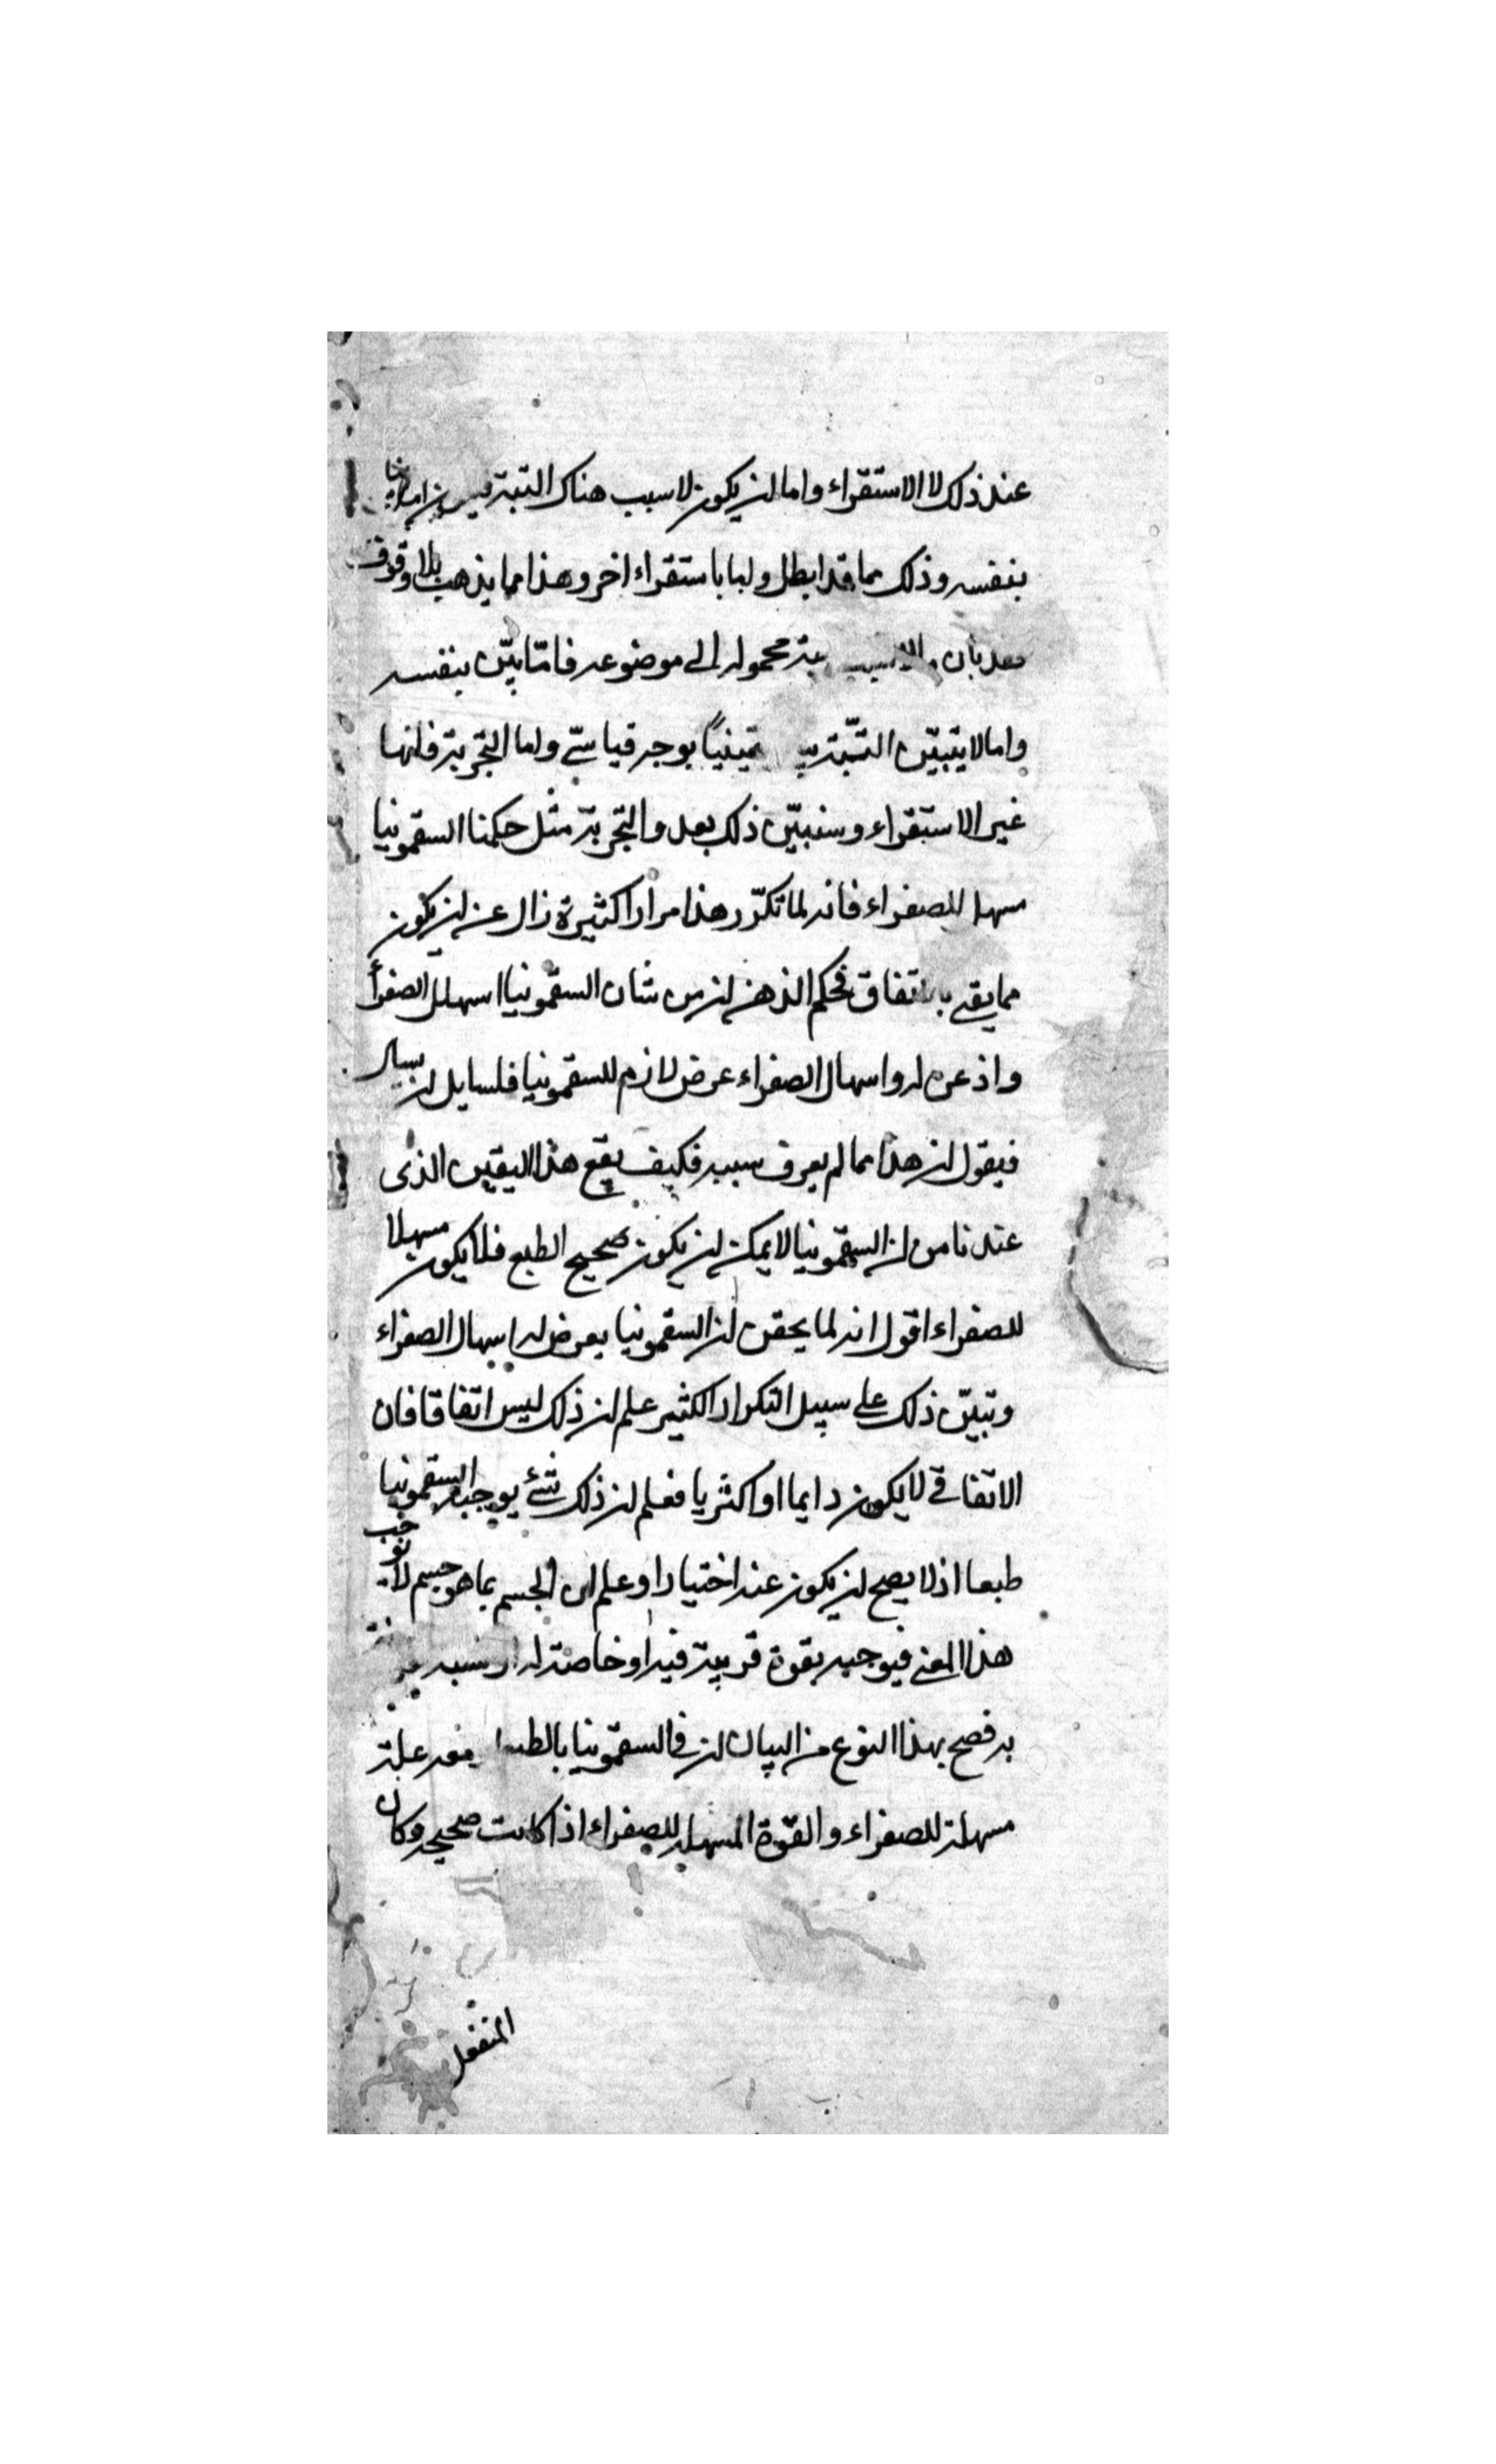 عند ذلك لا الاستقراء واما ان يكون لا سبب هناك البتة
بنفسه وذلك مما قد ابطل ولبا باستقراء اخر وهذا مما يذهب بلا وقوف
محموله الى موضوعه فامّا بيّن بنفسه
واما لا يتبيّن البتّة يقينيًا بوجه قياسيّ واما التجربة فانها
غير الاستقراء وسنبيّن ذلك بعد والتجربة مثل حكمنا السقمونيا
مسهل للصفراء فانه لما تكرّر هذا مرارا كثيرة زال عن ان يكون
مما يقع بالاتفاق فحكم الذهن ان من شان السقمونيا اسهال الصفرأ
واذعن له واسهال الصفراء عرض لازم للسقمونيا فلسايل ان يسال
فيقول ان هذا مما لم يعرف سببه فكيف يقع هذا اليقين الذى
عندنا من ان السقمونيا لا يمكن ان يكون صحيح الطبع فلا يكون مسهلا
للصفراء اقول انه لما يحقن ان السقمونيا يعرض له اسهال الصفراء
وتبيّن ذلك على سبيل التكرار الكثير علم ان ذلك ليس اتفاقا فان
الاتفاقي لا يكون دايما او اكثريا فعلم ان ذلك شئ يوجبه السقمونيا
طبعا اذ لا يصح ان يكون عنه اختيارا وعلم ان الجسم بما هو جسم لا يوجب
هذا المعنى فيوجبه بقوة قريبة فيه او خاصة له او نسبة
به فصح بهذا النوع من البيان ان في السقمونيا بالطبع معه علة
مسهلة للصفراء والقوّة المسهلة للصفراء اذا كانت صحيحة وكان
المنفعل